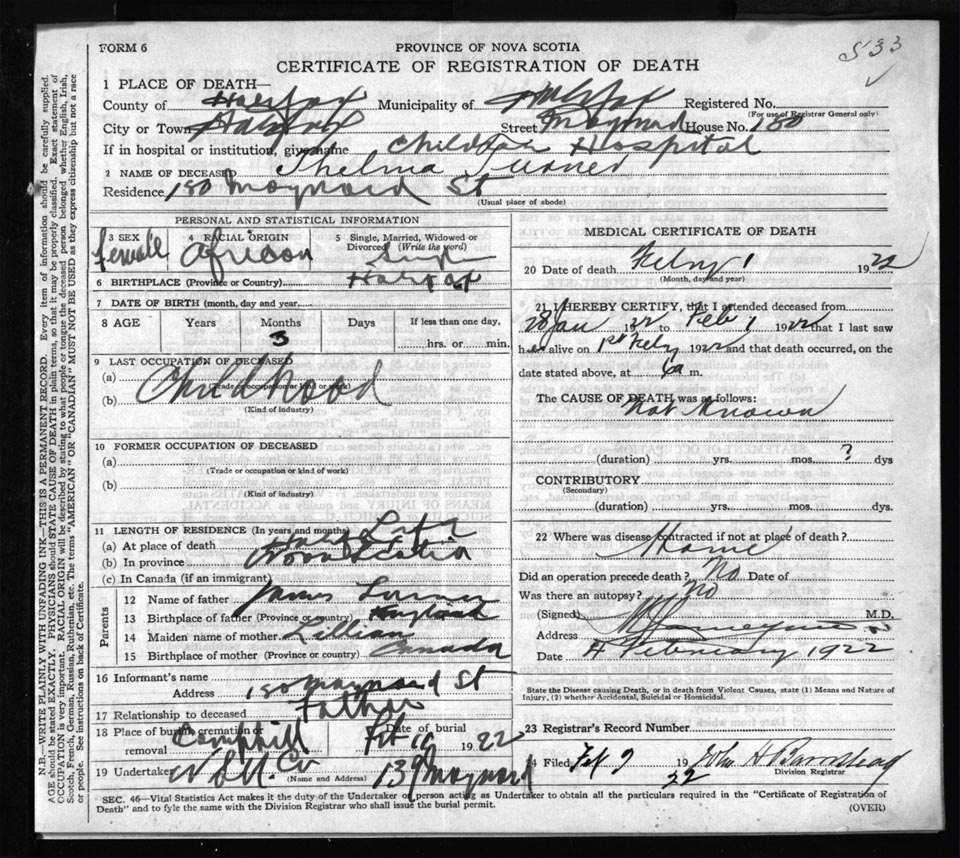 FORM 6
PROVINCE OF NOVA SCOTIA
533
CERTIFICATE OF REGISTRATION OF DEATH
1 PLACE OF DEATH—
County of Halifax Municipality of Halifax Registered No.
(For use of Registrar General only)
City or Town Halifax Street Maynard House No. 180
If in hospital or institution, give name Children Hospital
2 NAME OF DECEASED Thelma Turner
Residence 180 Maynard St
(Usual place of abode)
PERSONAL AND STATISTICAL INFORMATION
3 SEX 4 RACIAL ORIGIN 5 Single, Married, Widowed or
Divorced (Write the word)
female African Single
6 BIRTHPLACE (Province or Country) Halifax
7 DATE OF BIRTH (month, day and year)
8 AGE Years Months Days If less than one day,
3
hrs. or min.
9 LAST OCCUPATION OF DECEASED
(a) Childhood
(Trade or occupation or kind of work)
(b)
(Kind of industry)
10 FORMER OCCUPATION OF DECEASED
(a)
(Trade or occupation or kind of work)
(b)
(Kind of industry)
11 LENGTH OF RESIDENCE (In years and months)
(a) At place of death
(b) In province Nova Scotia
(c) In Canada (if an immigrant)
Parents
12 Name of father James Turner
13 Birthplace of father (Province or country)
14 Maiden name of mother Lillian
15 Birthplace of mother (Province or country) Canada
16 Informant's name
Address 180 Maynard St
17 Relationship to deceased Father
18 Place of burial, cremation or removal Camphill Date of burial Feb 10 1922
19 Undertaker Co 139 Maynard
(Name and Address)
MEDICAL CERTIFICATE OF DEATH
20 Date of death Febry 1 1922
(Month, day and year)
21 I HEREBY CERTIFY, that I attended deceased from
28 Jan 1922 to Feb 1 1922 that I last saw
h alive on 1st Febry 1922 and that death occurred, on the
date stated above, at 6a m.
The CAUSE OF DEATH was as follows:
Not Known
(duration) yrs. mos. ? dys
CONTRIBUTORY
(Secondary)
(duration) yrs. mos. dys.
22 Where was disease contracted if not at place of death?
Home
Did an operation precede death? No Date of
Was there an autopsy? No
(Signed) M.D.
Address
Date 4 February 1922
State the Disease causing Death, or in death from Violent Causes, state (1) Means and Nature of
Injury, (2) whether Accidental, Suicidal or Homicidal.
23 Registrar's Record Number
24 Filed Feb 9 1922 John H Barnstead
Division Registrar
SEC. 46—Vital Statistics Act makes it the duty of the Undertaker or person acting as Undertaker to obtain all the particulars required in the "Certificate of Registration of
Death" and to fyle the same with the Division Registrar who shall issue the burial permit.
(OVER)
N.B.—WRITE PLAINLY WITH UNFADING INK—THIS IS A PERMANENT RECORD. Every item of information should be carefully supplied.
AGE should be stated EXACTLY. PHYSICIANS should STATE CAUSE OF DEATH in plain terms, so that it may be properly classified. Exact statement of
OCCUPATION is very important. RACIAL ORIGIN will be described by stating to what people or tongue the deceased person belonged whether English, Irish,
Scotch, French, German, Russian, Ruthenian, etc. The terms "AMERICAN" OR "CANADIAN" MUST NOT BE USED as they express citizenship but not a race
or people. See instructions on back of Certificate.